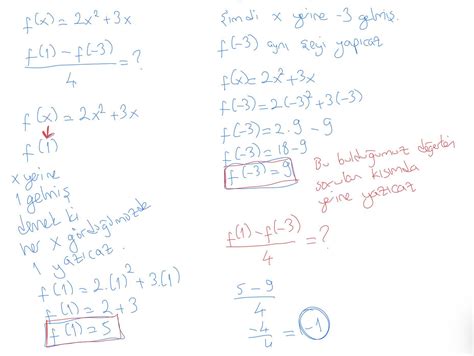 f(x) = 2x² + 3x
f(1) - f(-3) / 4 = ?
f(x) = 2x² + 3x
f(1)
x yerine
1 gelmiş
demek ki
her x gördüğümüzde
1 yazıcaz.
f(1) = 2.(1)² + 3.(1)
f(1) = 2 + 3
f(1) = 5
Şimdi x yerine -3 gelmiş.
f(-3) aynı şeyi yapıcaz
f(x) = 2x² + 3x
f(-3) = 2(-3)² + 3(-3)
f(-3) = 2.9 - 9
f(-3) = 18 - 9
f(-3) = 9
Bu bulduğumuz değerleri
sorulan kısımda
yerine yazıcaz
f(1) - f(-3) / 4 = ?
5 - 9 / 4
-4 / 4 = -1